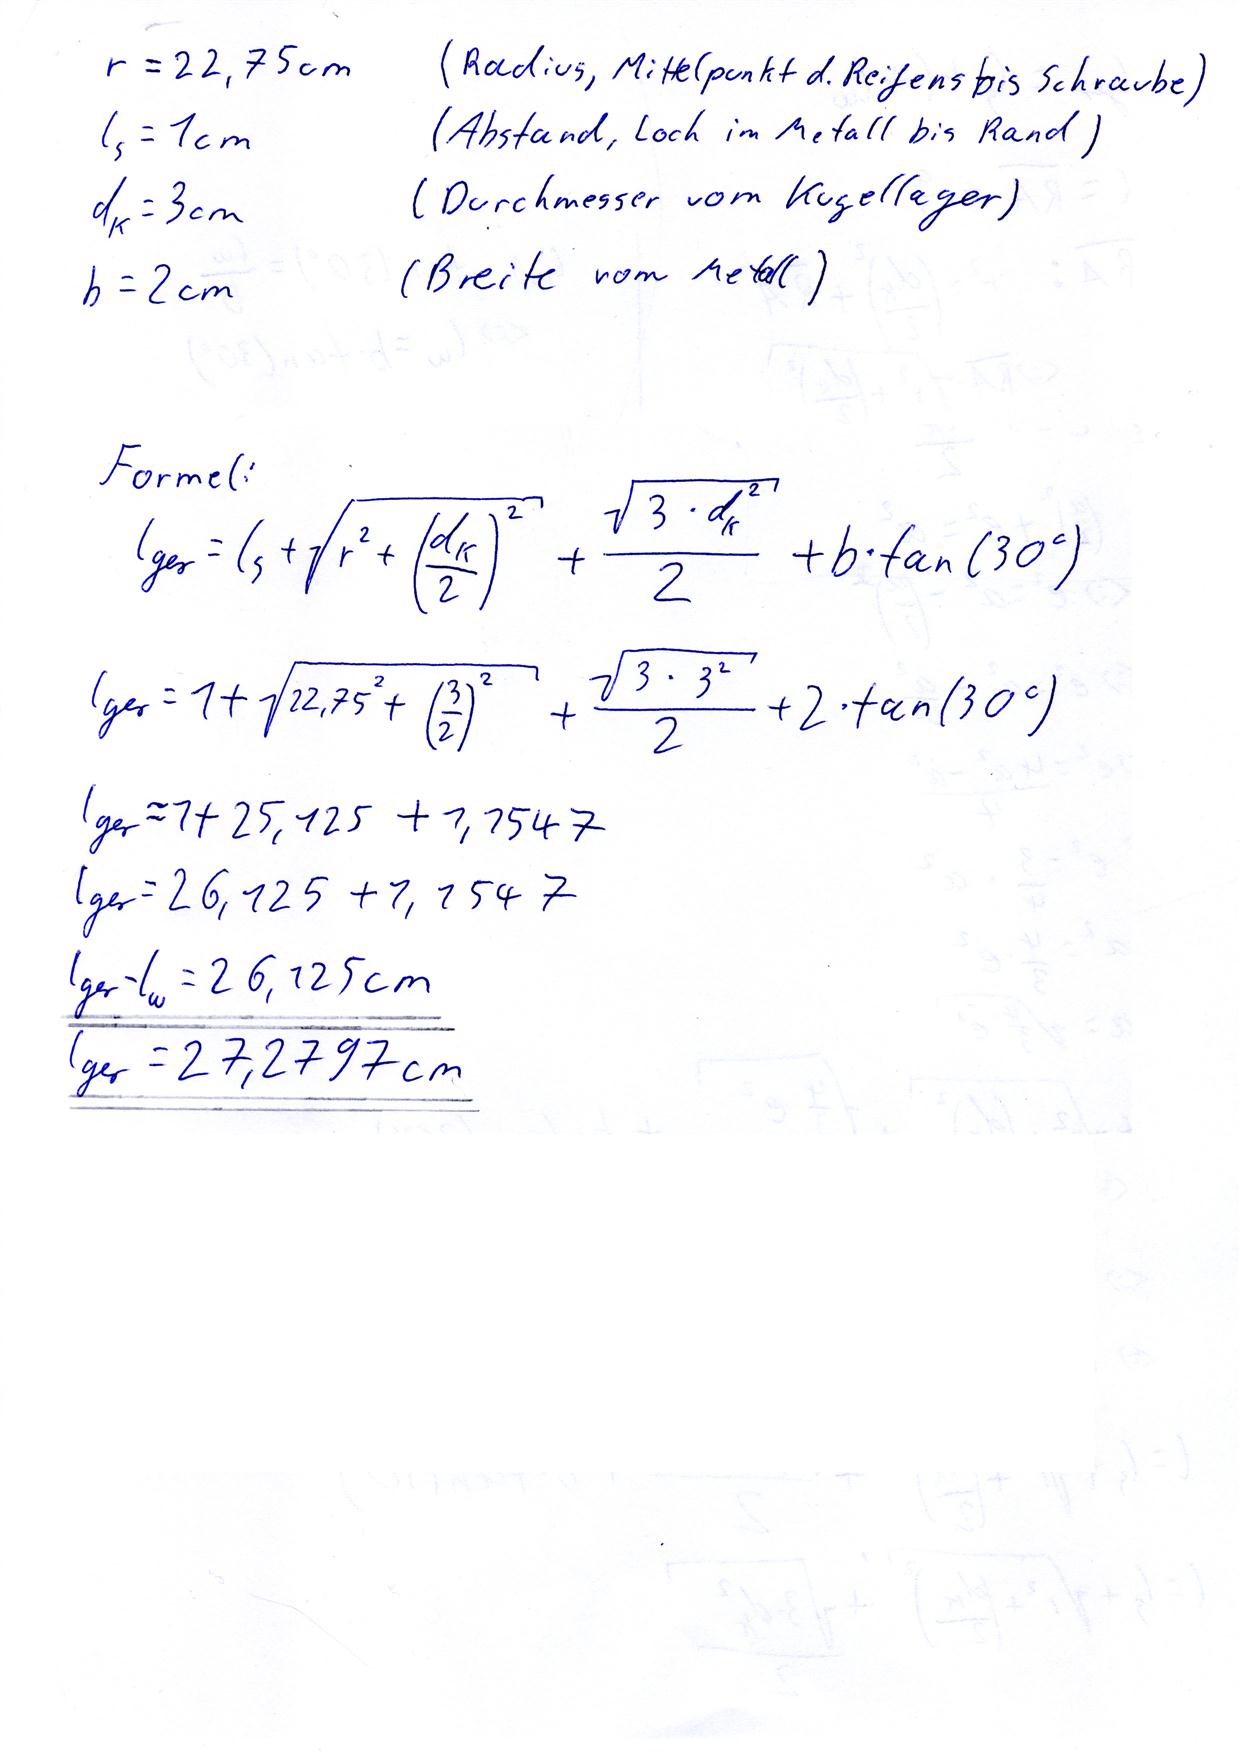 r = 22,75cm (Radius, Mittelpunkt d. Reifens bis Schraube)
l_s = 1cm (Abstand, Loch im Metall bis Rand)
d_K = 3cm (Durchmesser vom Kugellager)
b = 2cm (Breite vom Metall)
Formel:
l_ger = l_s + √(r² + (d_K/2)²) + √(3 · d_K²)/2 + b · tan(30°)
l_ger = 1 + √(22,75² + (3/2)²) + √(3 · 3²)/2 + 2 · tan(30°)
l_ger ≈ 1 + 25,125 + 1,1547
l_ger = 26,125 + 1,1547
l_ger - l_w = 26,125cm
l_ger = 27,2797cm